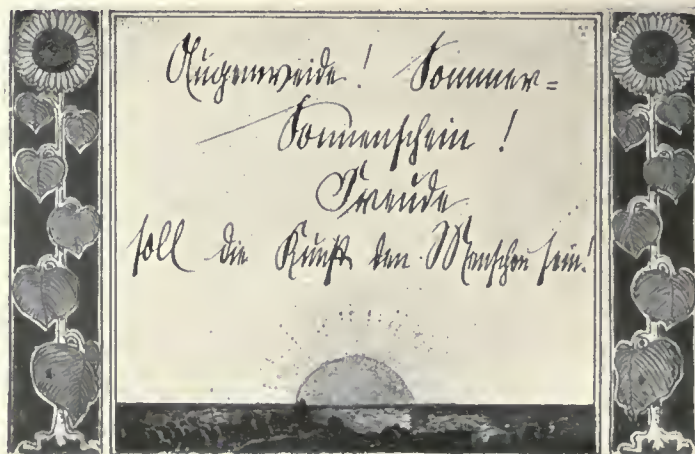 Augenweide! Sommer=
Sonnenschein!
Freude
soll die Kunst den Menschen sein!